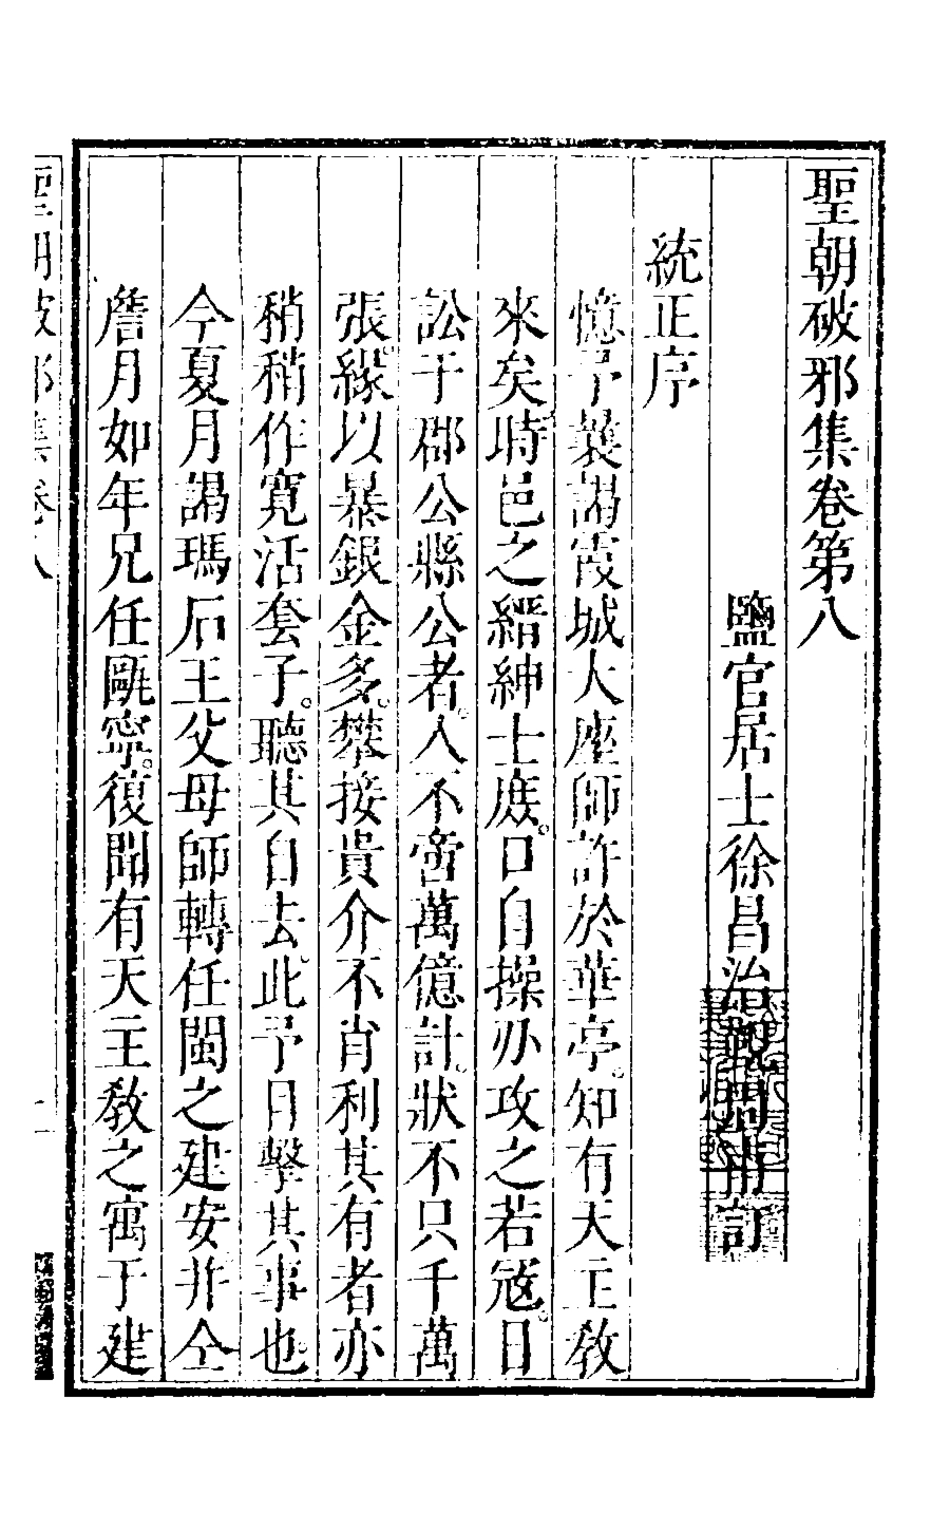 聖朝破邪集卷第八
鹽官居士徐昌治覲周甫訂
統正序
憶予曩謁霞城大座師許於華亭。知有天主教
來矣時邑之縉紳士庶。口自操刅攻之若寇。日
訟于郡公縣公者。人不啻萬億計。狀不只千萬
張緣以暴銀金多。攀接貴介不肖利其有者亦
稍稍作寬活套子。聽其自去此予目擊其事也
今夏月謁瑪石王父母師轉任閩之建安并仝
詹月如年兄任甌寧。復聞有天主教之寓于建
聖朝破邪集卷八 一